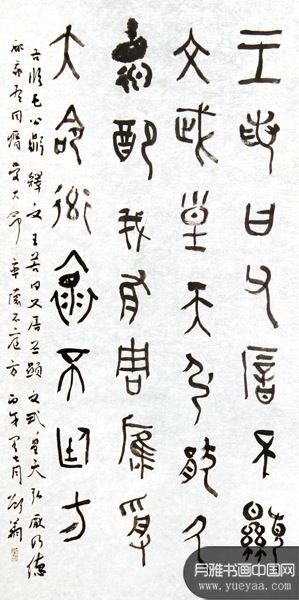 王若曰父厝不顯
文武皇天弘猒氒
德配我有周膺受
大命率懷不廷方
毛公鼎 釋文 王若曰父厝丕顯 文武皇天弘厭乃德
配我有周膺受大命 率懷不廷方 七月
月雅书画中国网
www.yueyaa.com